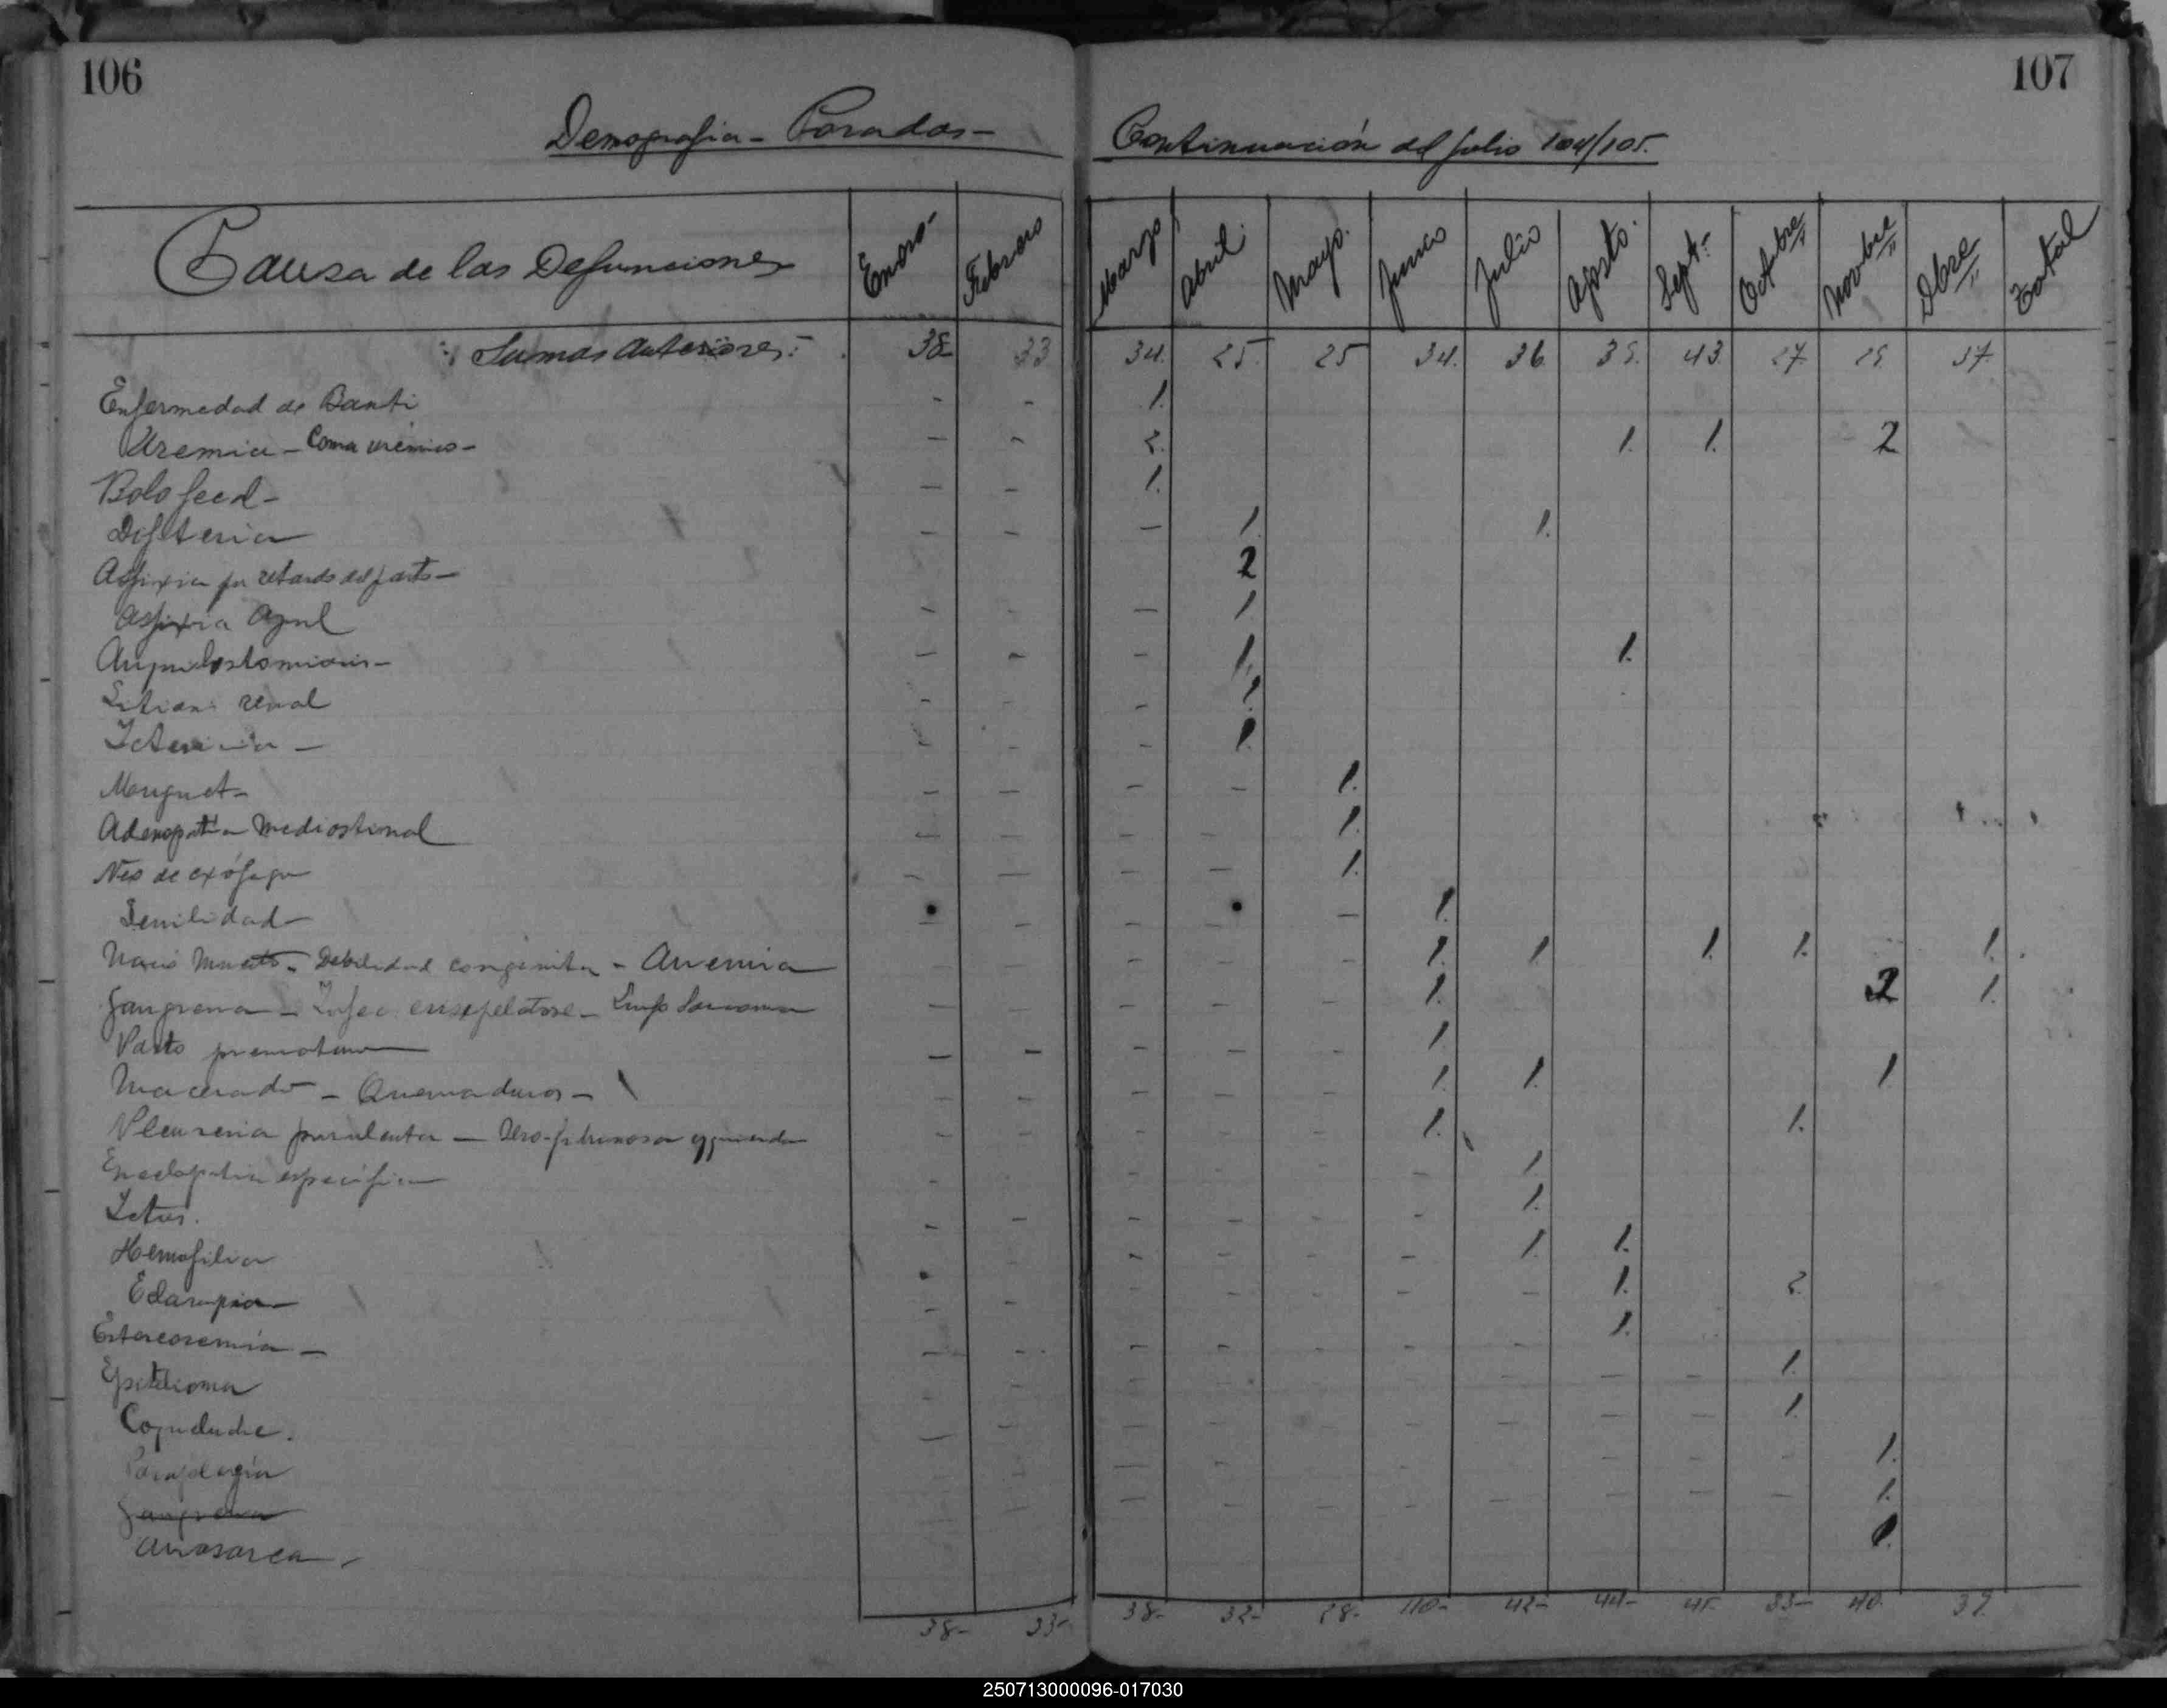 106
107
Demografia - Posadas -
Continuación del folio 104/105.
Causa de las Defunciones
Enero - Febrero Marzo Abril. Mayo. Junio Julio Agosto. Sept. Octubre Novbre Dbre Total
Sumas Anteriores: 38 33 34. 25. 25 34. 36. 43. 27. 37.
Enfermedad de Banti - - 1.
Uremia - Coma urémico - - - 2. 1. 1. 2
Bolo fecal - - - 1.
Difteria - - - 1. 1.
Asfixia por retardo del parto - 2
Asfixia Azul - - - 1.
Anquilostomiasis - - - - 1. 1.
Litiasis renal - - -
Ictericia - - - - 1.
Muguet - - - - - 1.
Adenopatia Mediastinal - - - - 1.
Neo de exófago - - - - 1.
Senilidad - - - - 1.
Nació Muerto - Debilidad congenita - Anemia - - - - - 1. 1. 1. 1. 1.
Gangrena - Infec. - - - - - 1. 2 1.
Parto prematuro - - - - - 1.
Macerado - Quemaduras - - - - - - 1. 1. 1.
Pleuresia purulenta - Sero-fibrinosa izquierda - - - - - 1. 1.
específica - - 1.
Ictus. - - - - - - 1.
Hemofilia - - - - 1. 1.
Eclampsia - - - - - - - 1. 2.
Estercoremia - - - - - - 1.
Epitelioma - - - - - - - - 1.
Coqueluche. - - - - - - - - - 1.
1.
Gangrena 1.
Anasarca 1.
38- 33- 38- 32- 28- 40- 42- 44- 45- 33- 40. 39.
250713000096-017030